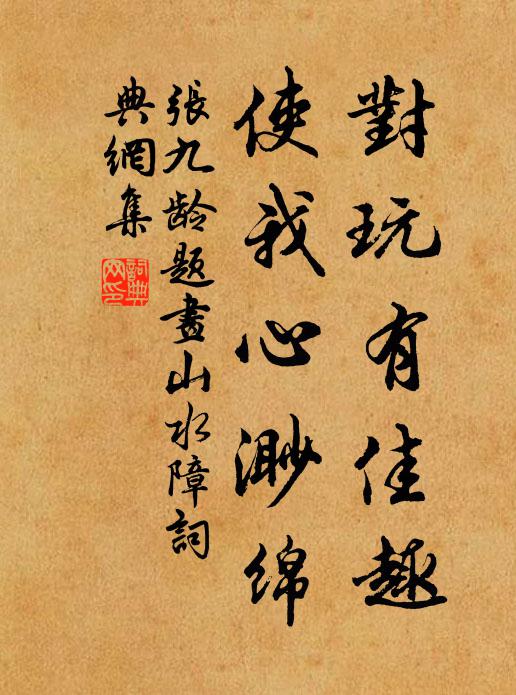 對玩有佳趣
使我心渺綿
張九龄題畫山水障詞
典網集
詞典网印